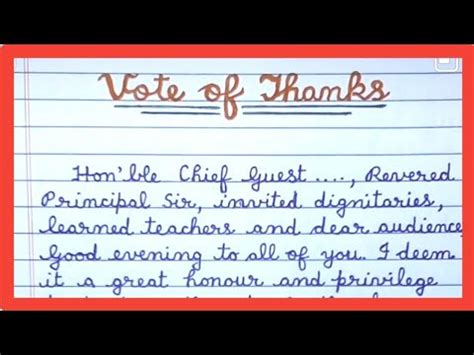 Vote of Thanks
Hon'ble Chief Guest ...., Revered
Principal Sir, invited dignitaries,
learned teachers and dear audience
Good evening to all of you. I deem
it a great honour and privilege